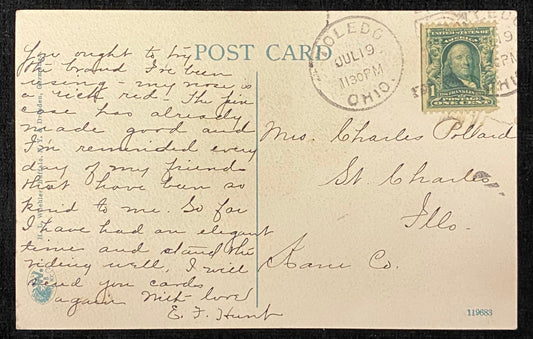 POST CARD
TOLEDO
JUL 19
1130PM
OHIO.
UNITED STATES OF AMERICA
FRANKLIN
ONE CENT
You ought to try
the brand I've been
using - my nose is
a rich red - The
case has already
made good and
I'm reminded every
day of my friends
that have been so
kind to me. So far
I have had an elegant
time and stand the
riding well, I will
send you cards
again with love
E. F. Hunt
Mrs. Charles Pollard
St. Charles
Ills.
Kane Co.
119683